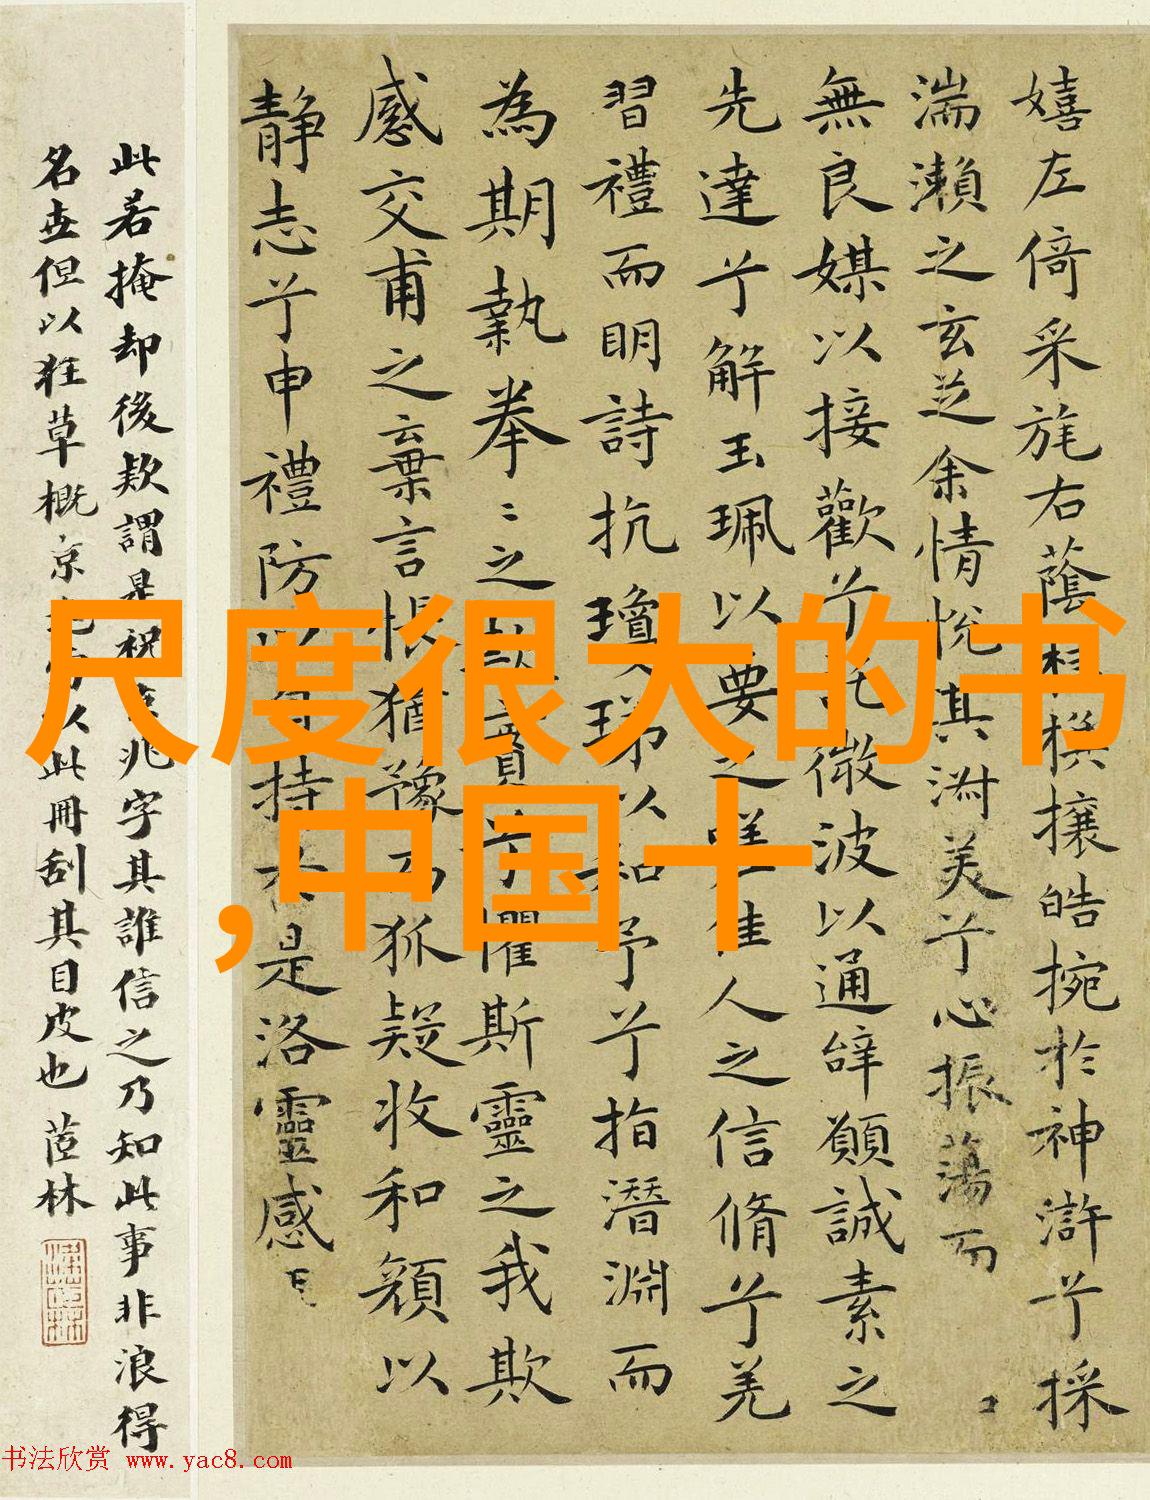 嬉左倚采旄右蔭桂旗攘皓捥於神滸兮採
湍瀬之玄芝余情悅其淑美兮心振蕩而
無良媒以接歡兮托微波以通辭願誠素之
先達兮解玉珮以要之嗟佳人之信脩兮羌
習禮而明詩抗瓊珶以和予兮指潛淵而
為期執拳〻之款實兮懼斯靈之我欺
感交甫之棄言悵猶豫而狐疑收和顏以
靜志兮申禮防以自持於是洛靈感
此若掩却後款謂是祝京兆字其誰信之乃知此事非浪得
名世但以狂草概京兆當以此冊刮其目皮也 茝林
尺度很大的书
,中国十
书法欣赏 www.yac8.com